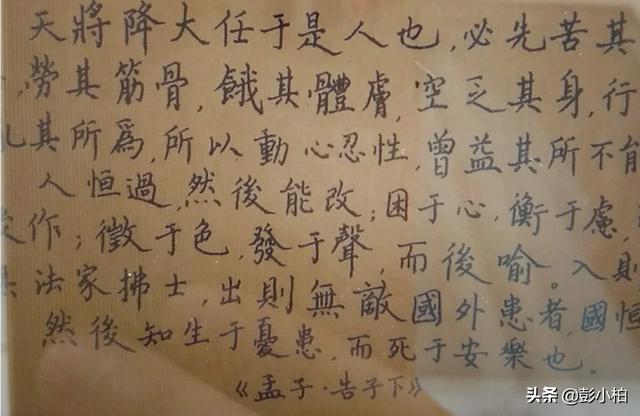 天將降大任于是人也，必先苦其
，勞其筋骨，餓其體膚，空乏其身，行
其所為，所以動心忍性，曾益其所不能
人恒過，然後能改；困于心，衡于慮，
作；徵于色，發于聲，而後喻。入則
法家拂士，出則無敵國外患者，國恒
然後知生于憂患，而死于安樂也。
《孟子·告子下》
头条 @彭小柏